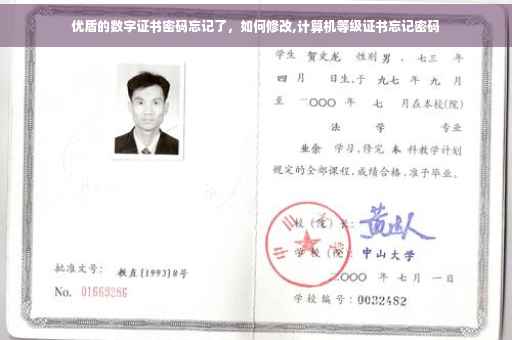 优盾的数字证书密码忘记了，如何修改,计算机等级证书忘记密码
学生 贺文龙 性别 男 、七三 年
四 月 日生,于 九七 年 九 月
至 二〇〇〇 年 七 月在本校(院)
法 学 专业
业余 学习,修完 本 科教学计划
规定的全部课程,成绩合格,准予毕业。
校 (院) 长:
学 校 (院): 中山大学
二〇〇〇 年 七 月 一 日
学校编号: 0032482
批准文号: 教直[1993]8号
No. 01669286